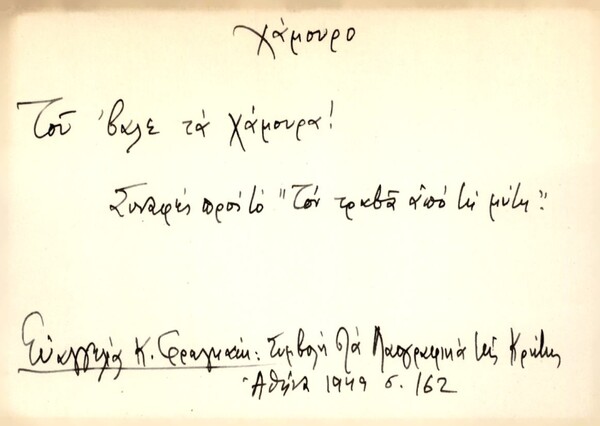 χάμουρο
Τοῦ 'βαλε τά χάμουρα!
Συναφές πρός τό "Τόν τραβᾶ ἀπό τή μύτη".
Εὐαγγελία Κ. Φραγκάκι: Συμβολή στά Λαογραφικά τῆς Κρήτης
Ἀθήνα 1949 σ. 162